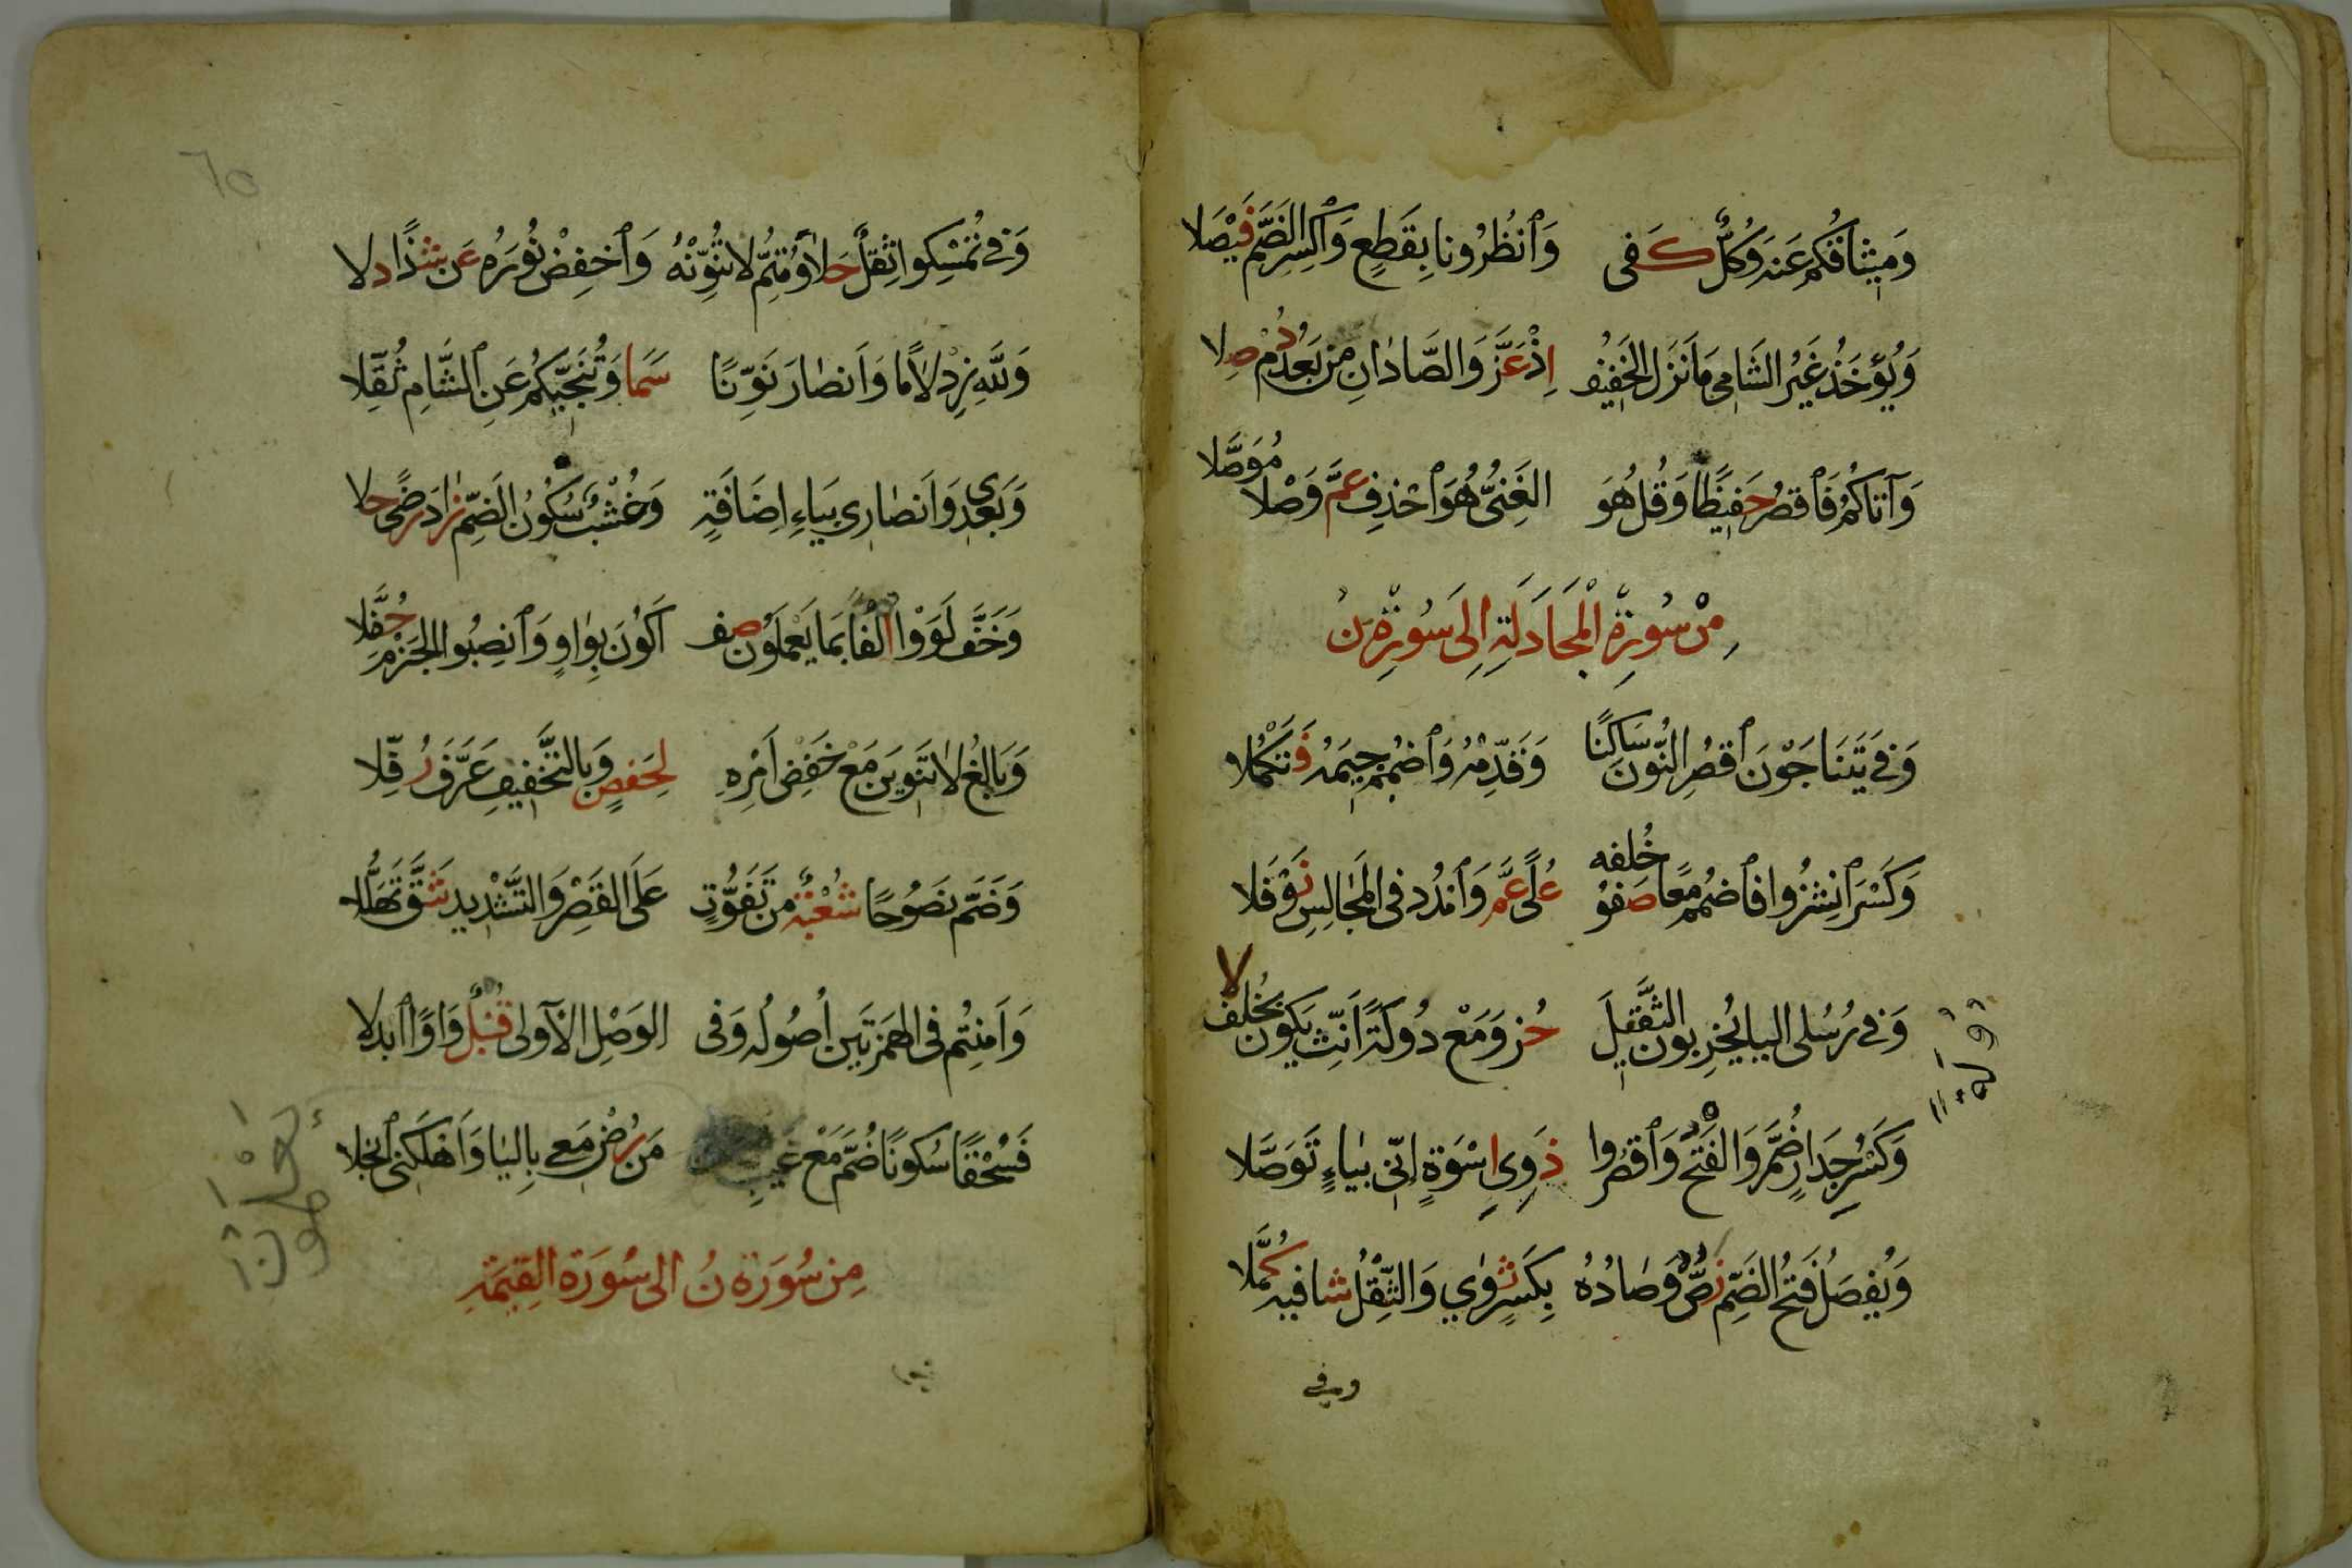 وَمِيثَاقُكُمْ عَنْهُ وَكُلٌّ كَفَى وَٱنْظُرُونَا بِقَطْعٍ وَٱكْسِرِ الضَّمَّ فَيْصَلَا
وَيُؤْخَذُ غَيْرُ الشَّامِي مَا نَزَلَ الْخَفِيفُ اِذْ عَزَّ وَالصَّادَانِ مِنْ بَعْدُ دُمْ صِلَا
وَآتَاكُمُ فَٱقْصُرْ حَفِيظًا وَقُلْ هُوَ الْغَنِيُّ هُوَ ٱحْذِفْ عَمَّ وَصْلًا مُوَصَّلَا
مِنْ سُورَةِ الْمُجَادَلَةِ اِلَى سُورَةِ نْ
وَفِي يَتَنَاجَوْنَ ٱقْصُرِ النُّونَ سَاكِنًا وَقَدِّمْهُ وَٱضْمُمْ جِيمَهُ فَتَكْمُلَا
وَكَسْرَ ٱنْشِزُوا فَٱضْمُمْ مَعًا صَفْوُ خُلْفِهِ عُلًى عَمَّ وَٱمْدُدْ فِي الْمَجَالِسِ نَوْفَلَا
وَفِي رُسُلِي الْيَا يُخْرِبُونَ الثَّقِيلَ حُزْ وَمَعْ دُولَةً أَنِّثْ يَكُونَ بِخُلْفِ لَا
وَكَسْرُ جِدَارٍ ضُمَّ وَالْفَتْحُ وَٱقْصُرُوا ذَوِي اِسْوَةٍ اِنِّي بِيَاءٍ تَوَصَّلَا
وَيُفْصَلُ فَتْحُ الضَّمِّ نَصٌّ وَصَادُهُ بِكَسْرٍ ثَوَى وَالثِّقْلُ شَافِيهِ كُمَّلَا
وفي
وَفِي تُمْسِكُوا ثِقْلٌ حَلَا وَمُتِمُّ لَا تُنَوِّنْهُ وَٱخْفِضْ نُورَهُ عَنْ شَذًا دَلَا
وَلِلَّهِ زِدْ لَامًا وَاَنْصَارَ نَوِّنًا سَمَا وَتُنَجِّيكُمْ عَنِ ٱلشَّامِ ثُقِّلَا
وَبَعْدِي وَاَنْصَارِي بِيَاءِ اِضَافَةٍ وَخُشْبٌ سُكُونُ الضَّمِّ زَادَ رِضًى حَلَا
وَخَفَّ لَوَوْا اِلْفًا بِمَا يَعْمَلُونَ صِفْ اَكُونَ بِوَاوٍ وَٱنْصِبُوا الْجَزْمَ حُفَّلَا
وَبَالِغُ لَا تَنْوِينَ مَعْ خَفْضِ اَمْرِهِ لِحَفْصٍ وَبِالتَّخْفِيفِ عَرَّفَ رُفِّلَا
وَضَمَّ نَصُوحًا شُعْبَةٌ مِنْ تَفَوُّتٍ عَلَى الْقَصْرِ وَالتَّشْدِيدِ شَقَّ تَهَلُّلَا
وَاَمِنْتُمُ فِي الْهَمْزَتَيْنِ اُصُولُهُ وَفِي الْوَصْلِ الْاُولَى قُنْبُلٌ وَاوًا ٱبْدَلَا
فَسُحْقًا سُكُونًا ضُمَّ مَعْ غَيْبِ مَنْ رُضْ مَعِي بِالْيَا وَاَهْلَكَنِي ٱنْجَلَا
مِنْ سُورَةِ نُ اِلَى سُورَةِ الْقِيٰمَةِ